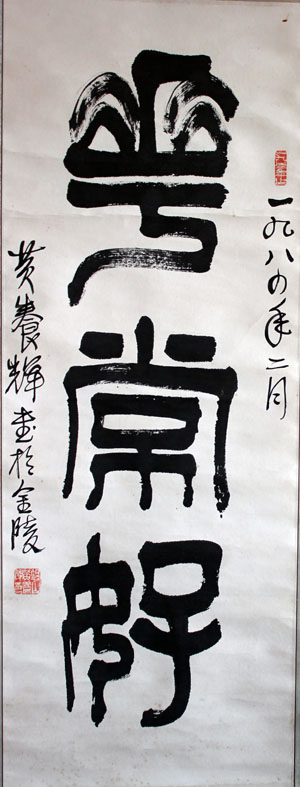 一九八四年二月
華常好
黄養輝書於金陵